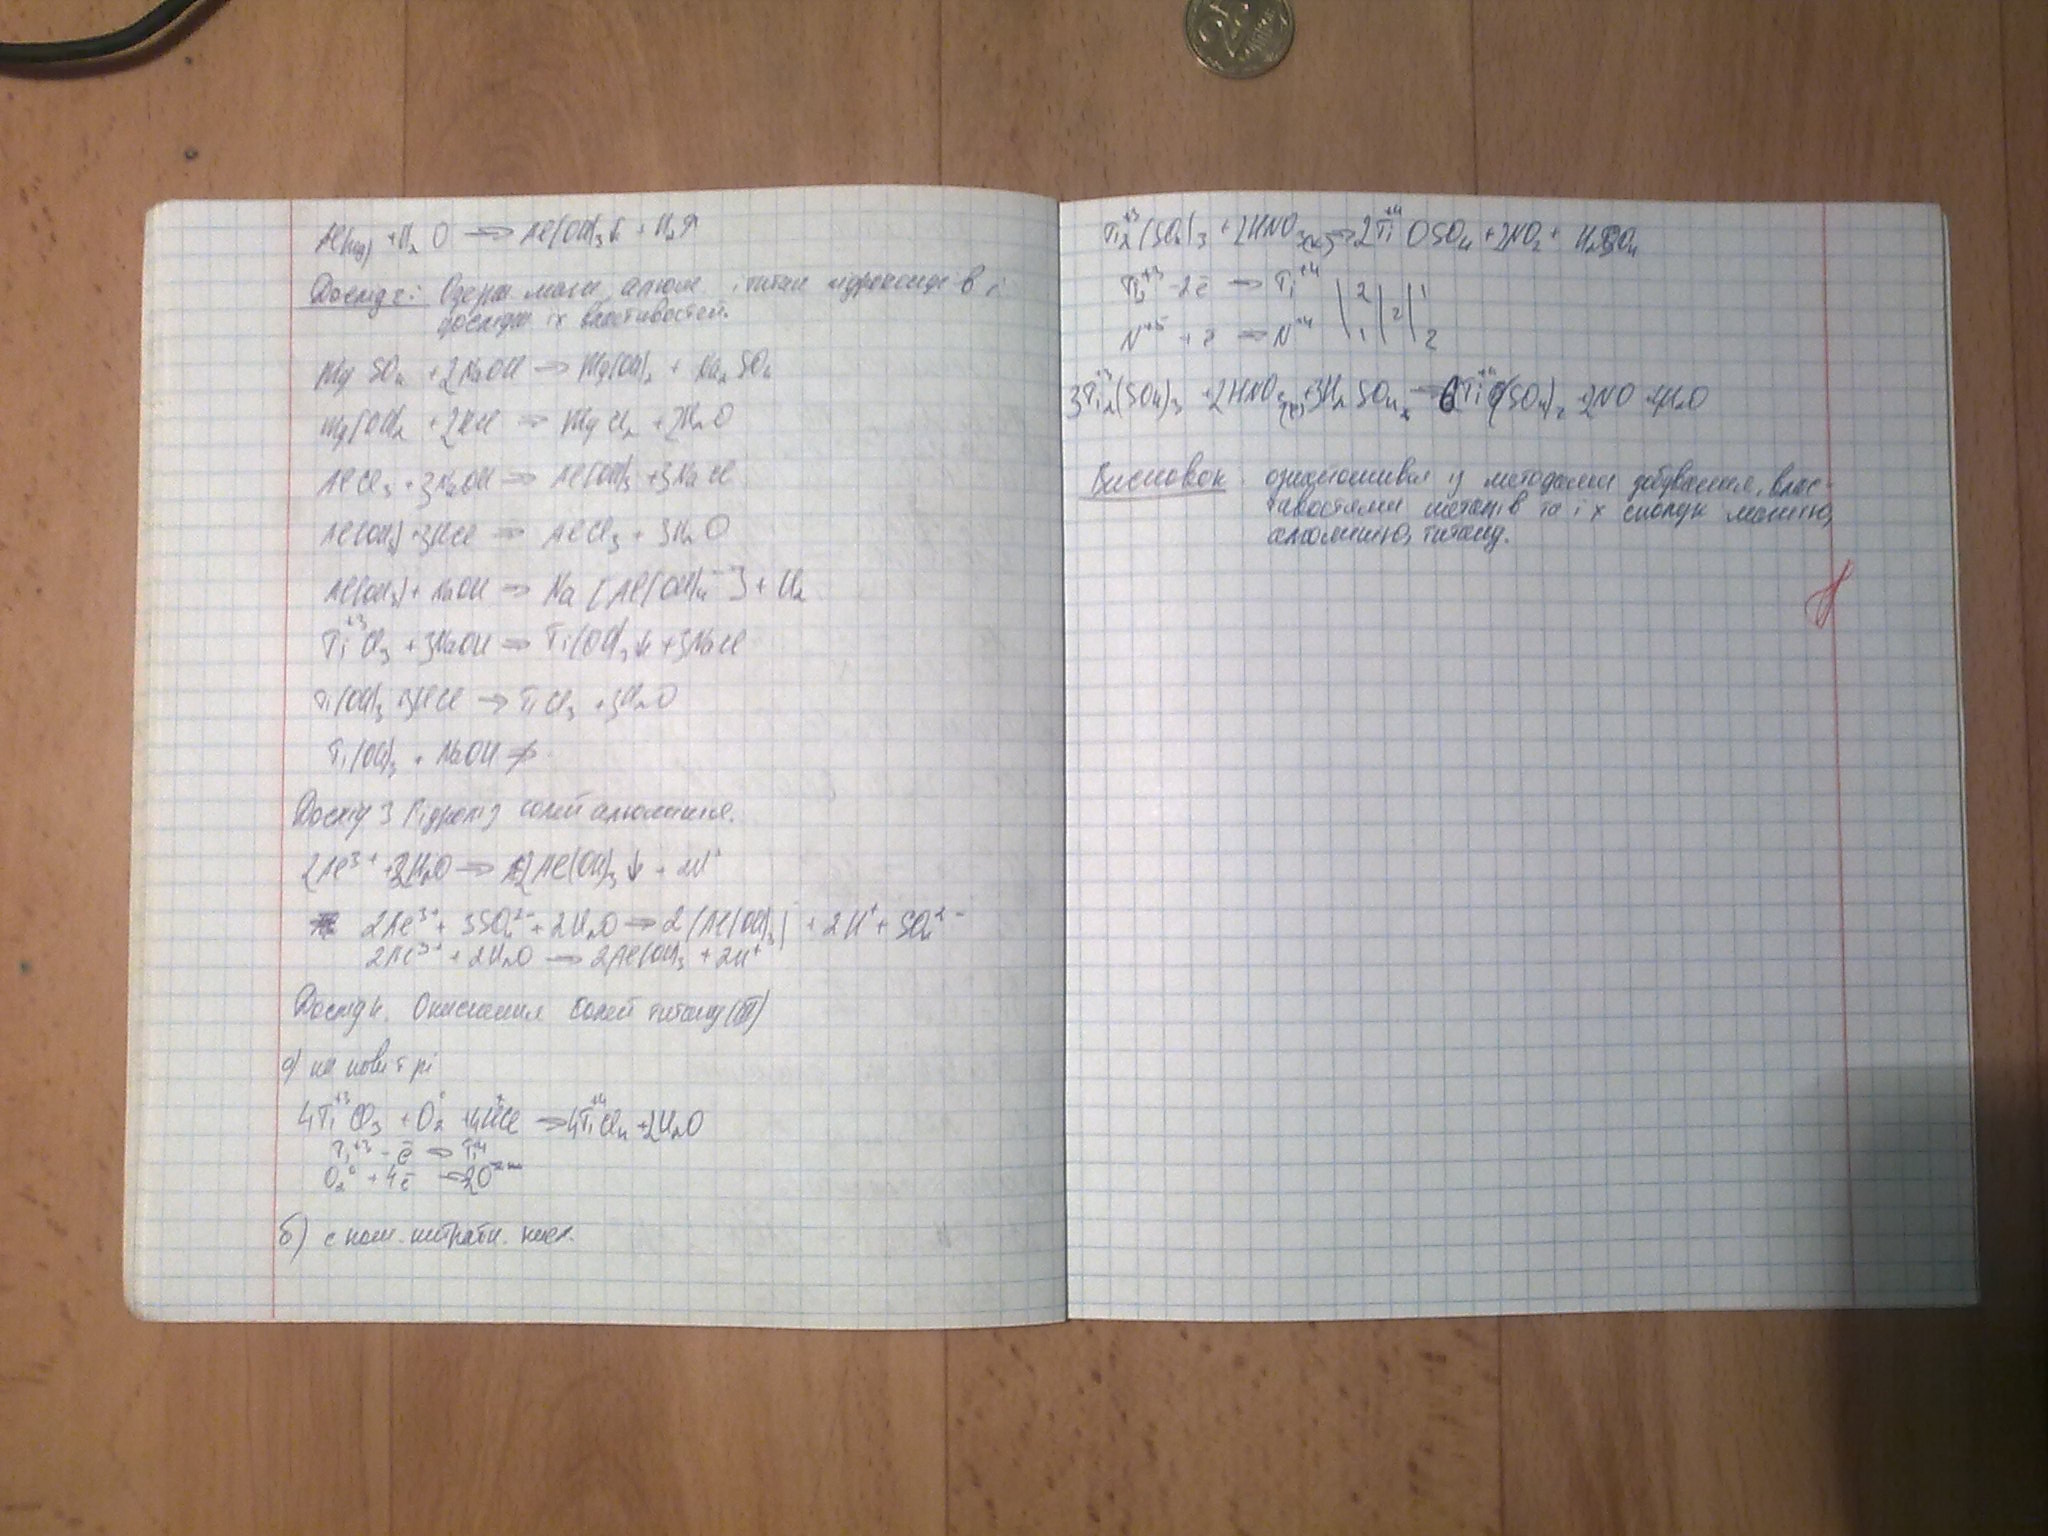 2
Al(Hg) + H₂O → Al(OH)₃↓ + H₂↑
Дослід 2: Одерж магн. алюм і титан гідроксидів і
дослідж їх властивостей.
MgSO₄ + 2NaOH → Mg(OH)₂ + Na₂SO₄
Mg(OH)₂ + 2HCl → MgCl₂ + 2H₂O
AlCl₃ + 3NaOH → Al(OH)₃ + 3NaCl
Al(OH)₃ + 3HCl → AlCl₃ + 3H₂O
Al(OH)₃ + NaOH → Na[Al(OH)₄⁻] + H₂
Ti⁺³Cl₃ + 3NaOH → Ti(OH)₃↓ + 3NaCl
Ti(OH)₃ 3HCl → TiCl₃ + 3H₂O
Ti(OH)₃ + NaOH ↛
Дослід 3 Гідроліз солей алюминия.
2Al³⁺ + 2H₂O → 2Al(OH)₃↓ + 2H⁺
2Al³⁺ + 3SO₄²⁻ + 2H₂O → 2[Al(OH)₃] + 2H⁺ + SO₄²⁻
2Al³⁺ + 2H₂O → 2Al(OH)₃ + 2H⁺
Дослід 4. Окиснення солей титану (III)
а) на повітрі
4Ti⁺³Cl₃ + O₂⁰ + 4HCl → 4Ti⁺⁴Cl₄ + 2H₂O
Ti⁺³ - ē → Ti⁺⁴
O₂⁰ + 4ē → 2O⁻²
б) с конц. нітратн. кисл.
Ti⁺³₂(SO₄)₃ + 2HNO₃(к) → 2Ti⁺⁴OSO₄ + 2NO₂ + H₂SO₄
Ti₂⁺³ - 2ē → Ti⁺⁴ | 2 | 2 | 1
N⁺⁵ + ē → N⁺⁴ | 1 | | 2
3Ti⁺³₂(SO₄)₃ + 2HNO₃ + 3H₂SO₄ → 6Ti⁺⁴(SO₄)₂ + 2NO + 4H₂O
Висновок: ознайомився із методами добування, влас-
тивостями металів та їх сполук магнію,
алюмінію, титану.